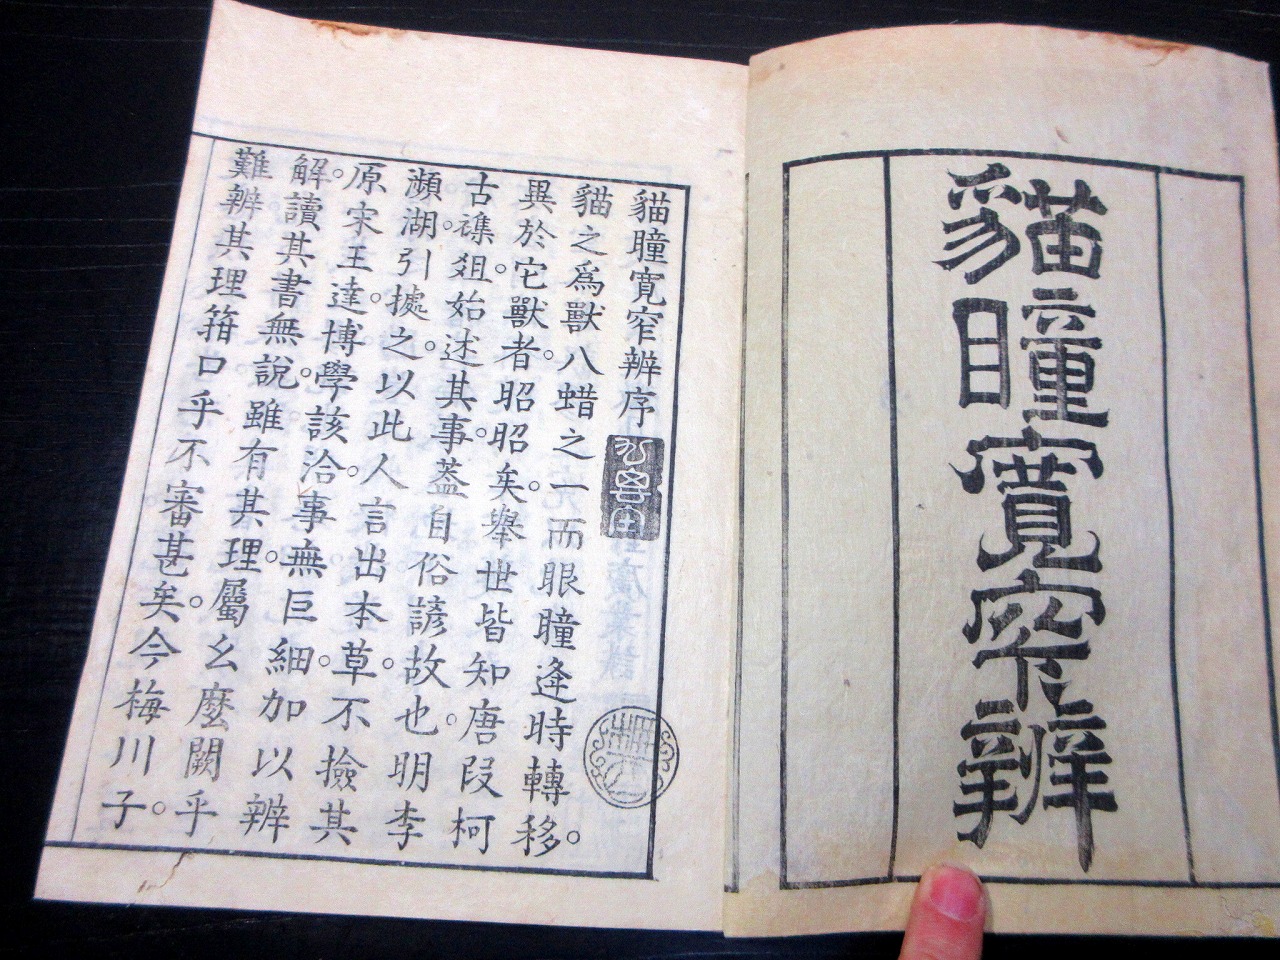 貓瞳寬窄辨
貓瞳寬窄辨序
貓之爲獸八蜡之一而眼瞳逢時轉移。
異於它獸者昭昭矣。舉世皆知唐段柯
古。襍俎始述其事。蓋自俗諺故也。明李
瀕湖。引據之。以此人言出本草。不撿其
原宋王逵。博學該洽。事無巨細。加以辨
解。讀其書無說。雖有其理。屬幺麼闕乎
難辨其理箝口乎不審甚矣。今梅川子。